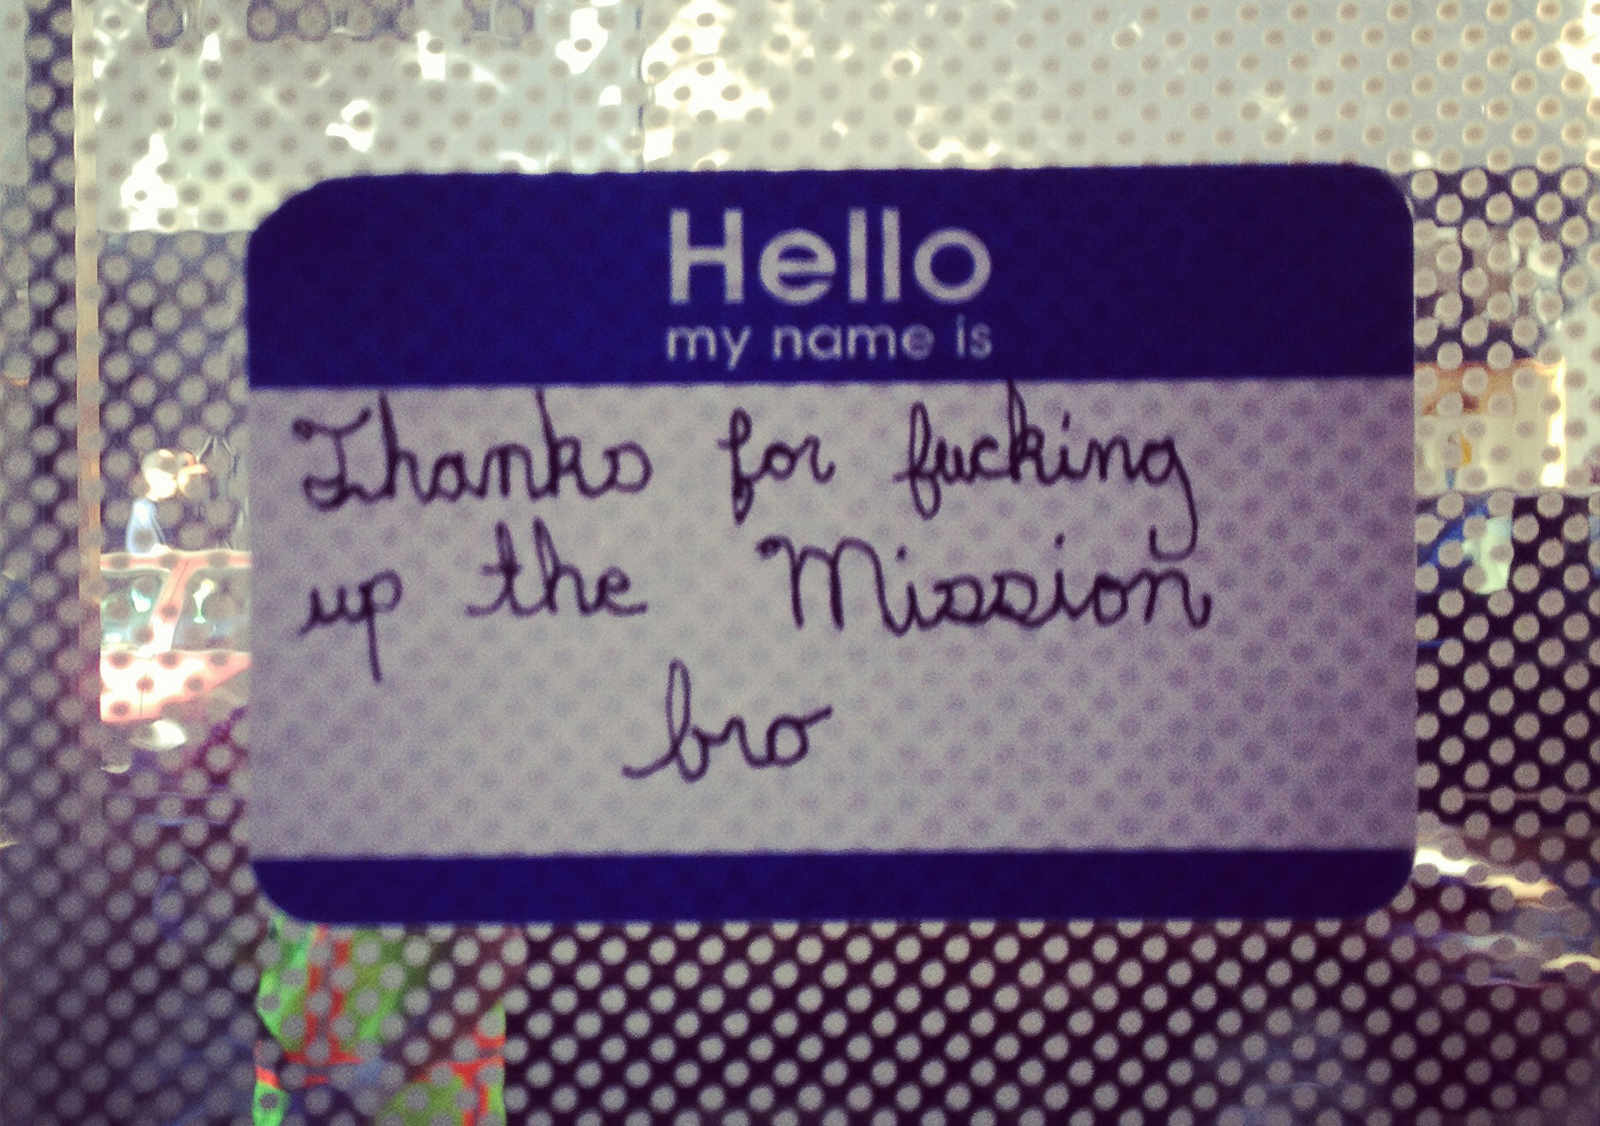 Hello
my name is
Thanks for fucking
up the Mission
bro